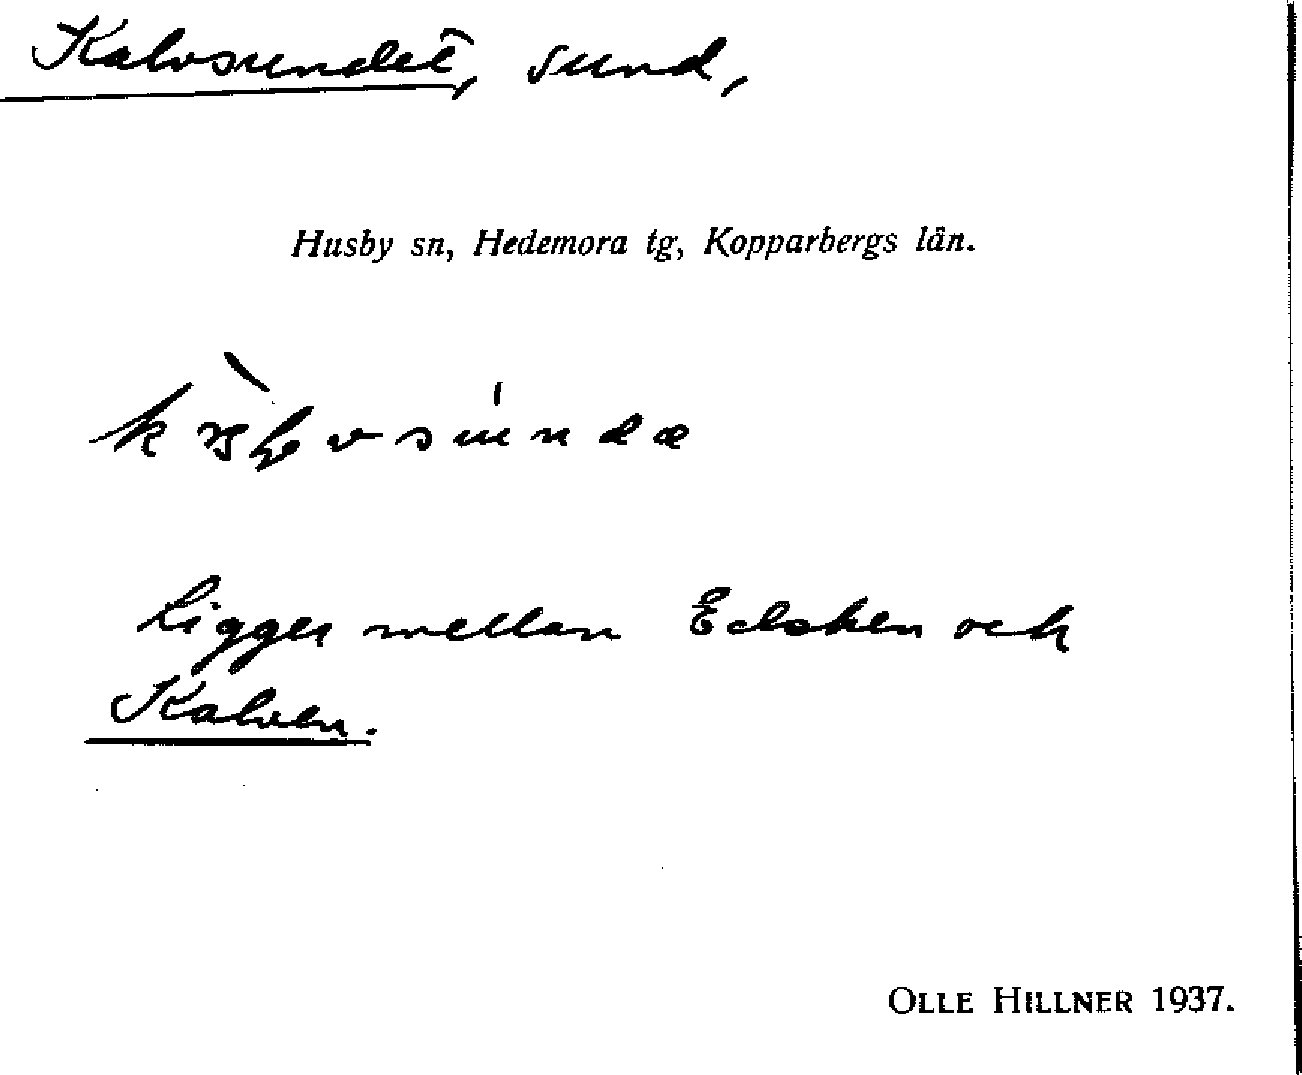 Kalvsundet, sund,
Husby sn, Hedemora tg, Kopparbergs län.
Ligger mellan Edsken och
Kalven.
OLLE HILLNER 1937.